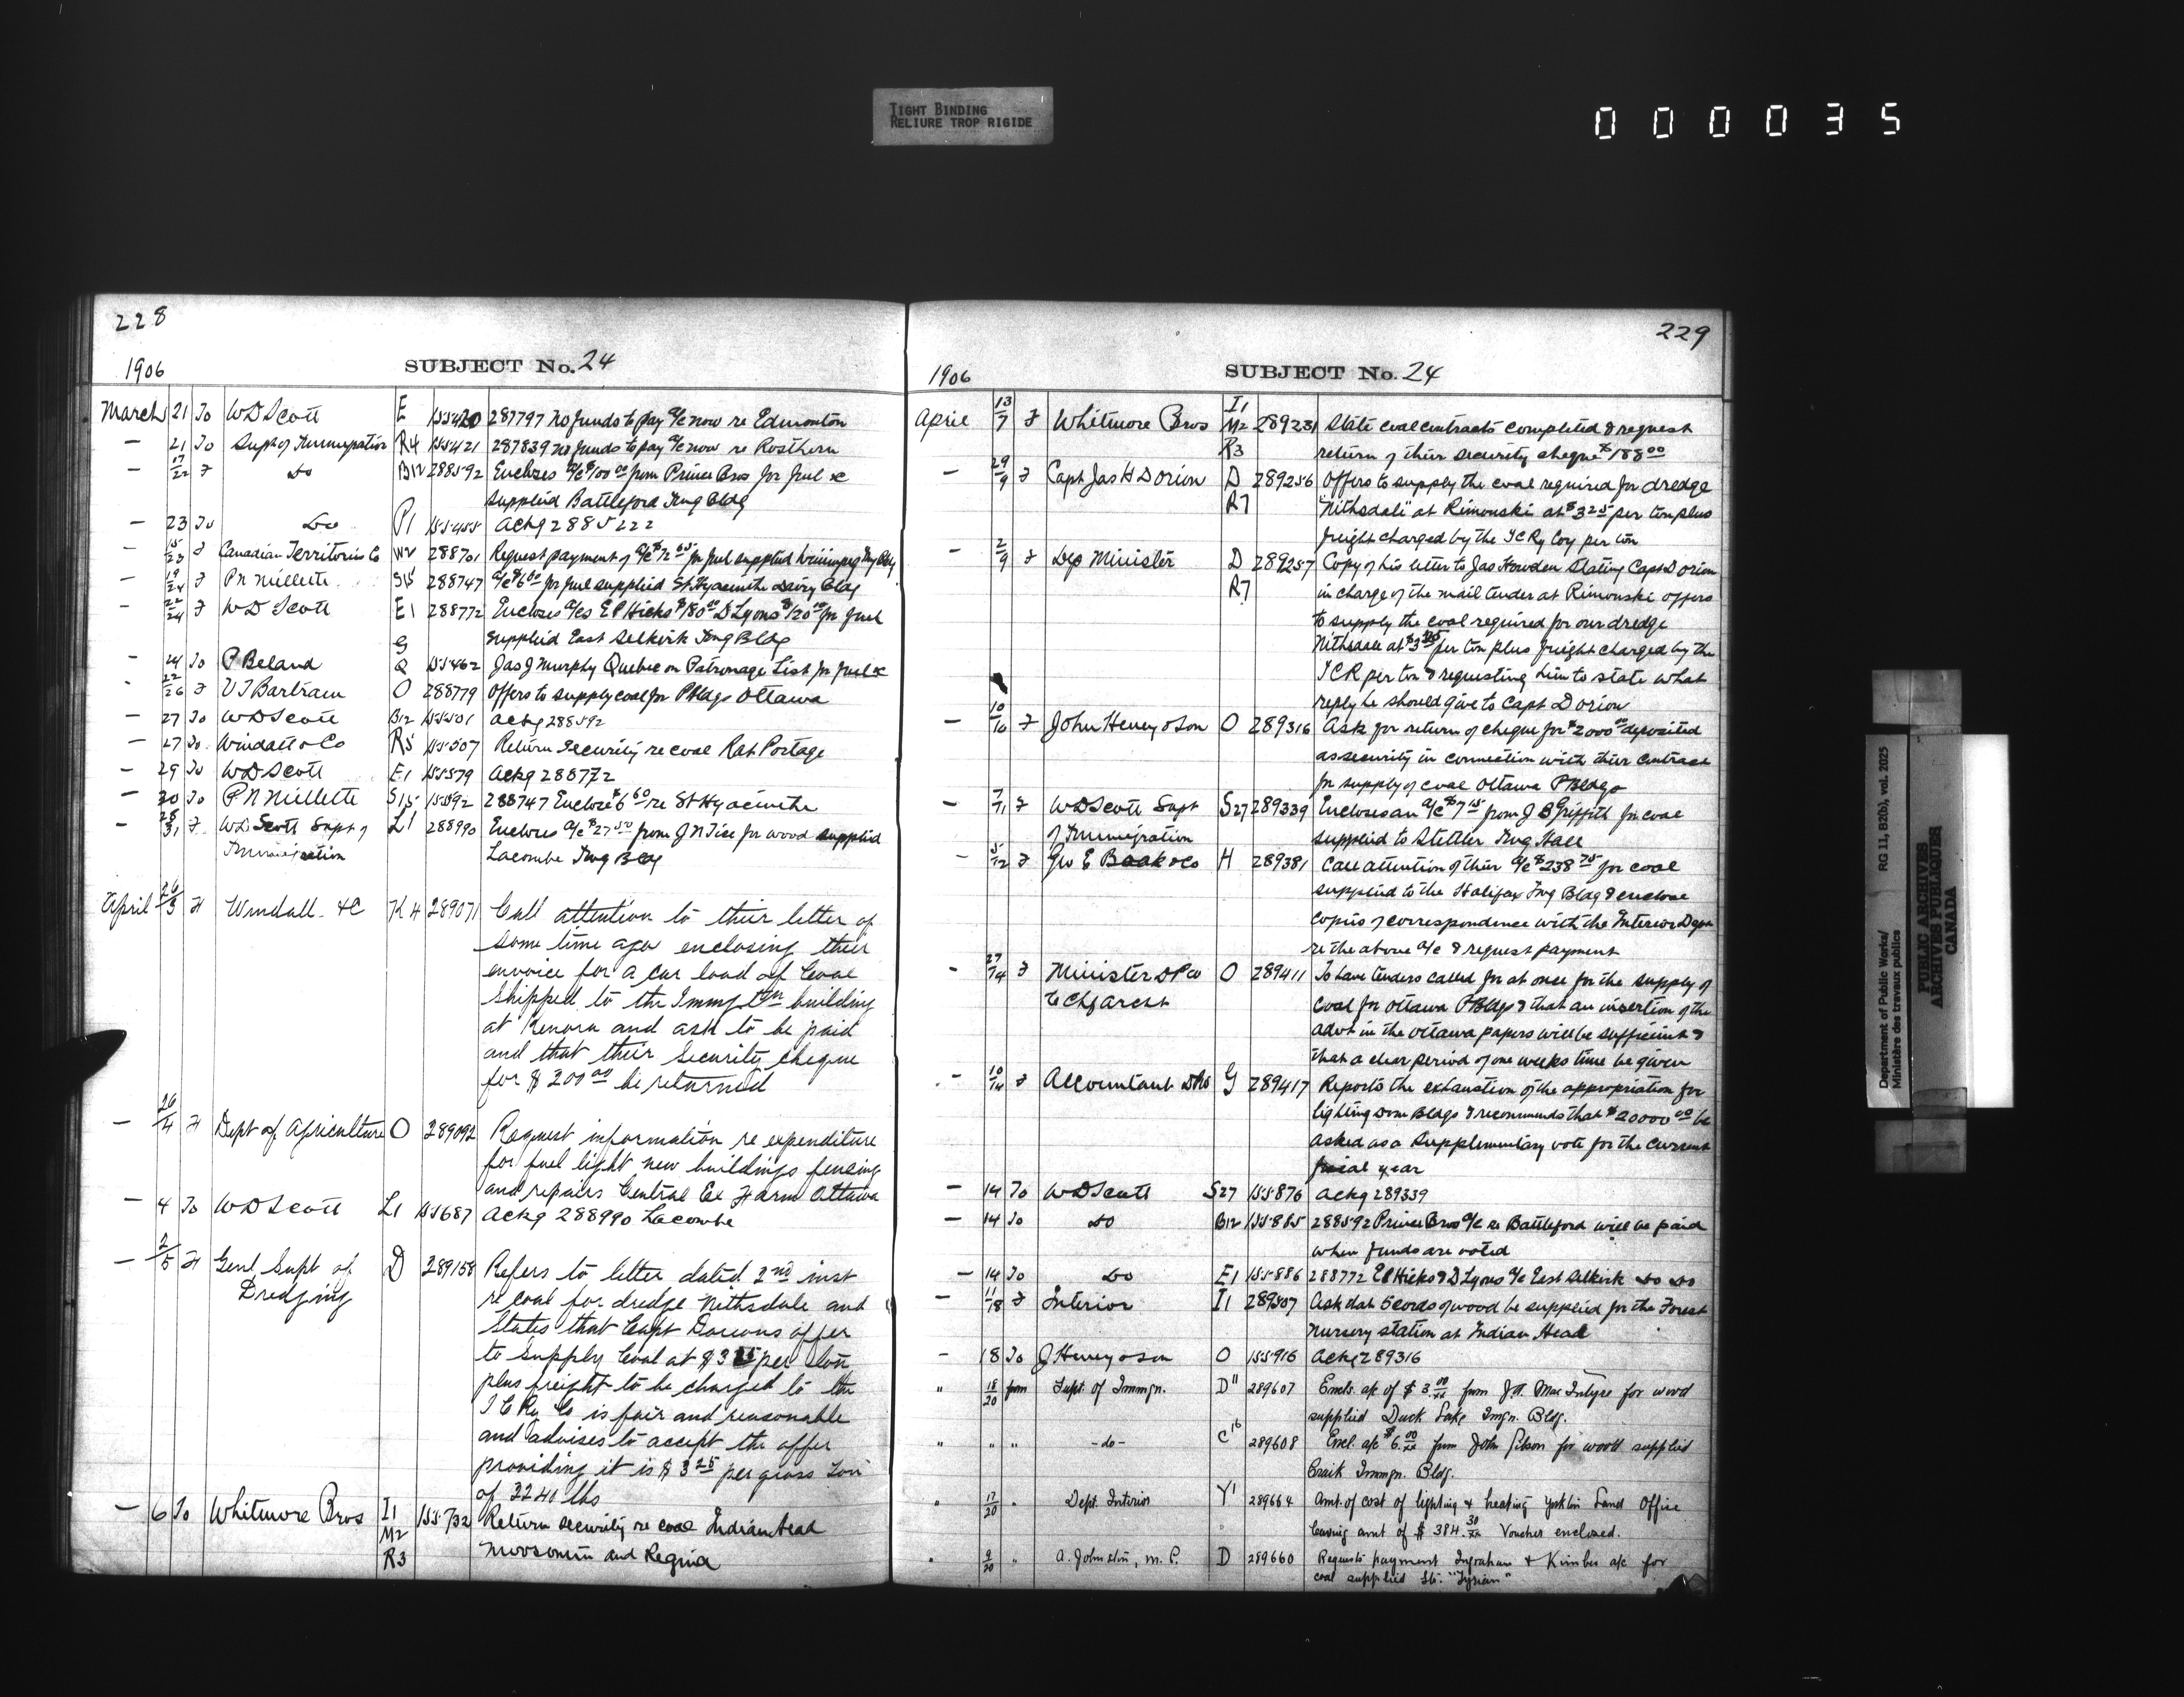 TIGHT BINDING
RELIURE TROP RIGIDE
000035
228
1906
SUBJECT No. 24
March 21 To WD Scott E 155420 287797 no funds to pay a/c now re Edmonton
— 21 To Supt of Immigration R4 155421 287839 no funds to pay a/c now re Rosthern
— 17/22 F do B12 288592 Encloses a/c $100 00 from Prince Bros for fuel &c
supplied Battleford Img Bldg
— 23 To Do P1 155455 ackg 2885222
— 15/23 F Canadian Territories Co W2 288701 Request payment of a/c for fuel supplied Winnipeg Img Bldg
— 19/24 F P N Millette S15 288747 a/c $6 60 for fuel supplied St Hyacinthe Dairy Bldg
— 22/24 F WD Scott E1 288772 Encloses a/cs E P Hicks $180 00 D Lyons $120 00 for fuel
supplied East Selkirk Img Bldg
— 24 To P Beland Q 155462 Jas J Murphy Quebec on Patronage List for fuel &c
— 22/26 F V J Bartram O 288779 Offers to supply coal for PBldgs Ottawa
— 27 To WD Scott B12 155501 ackg 288592
— 27 To Windatt & Co R5 155507 Return Security re coal Rat Portage
— 29 To WD Scott E1 155579 ackg 288772
— 30 To P N Millette S15 155592 288747 Enclose $6 60 re St Hyacinthe
— 28/31 F WD Scott Supt of L1 288990 Encloses a/c $27 50 from J N Tice for wood supplied
Immigration Lacombe Img Bldg
April 26/3 F Windall & C K4 289071 Call attention to their letter of
some time ago enclosing their
envoice for a car load of Coal
shipped to the Immgtn building
at Kenora and ask to be paid
and that their Security cheque
for $200 00 be returned
— 26/4 F Dept of Agriculture O 289092 Request information re expenditure
for fuel light new buildings fencing
and repairs Central Ex Farm Ottawa
— 4 To WD Scott L1 155687 Ackg 288990 Lacombe
— 2/5 F Genl Supt of D 289158 Refers to letter dated 2nd inst
Dredging re coal for dredge Nithsdale and
States that Capt Dorions offer
to supply Coal at $3 25 per ton
plus freight to be charged to the
I C Ry Co is fair and reasonable
and advises to accept the offer
providing it is $3 25 per gross Ton
of 2240 lbs
— 6 To Whitmore Bros I1 155732 Return security re coal Indian Head
M2
R3 Moosomin and Regina
229
1906
SUBJECT No. 24
April 13/7 F Whitmore Bros I1 M2 289231 State coal contracts completed & request
R3 return of their security cheque $188 00
— 29/9 F Capt Jas H Dorion D 289256 Offers to supply the coal required for dredge
R7 "Nithsdale" at Rimouski at $3 25 per ton plus
freight charged by the ICRy Coy per ton
— 2/9 F Dep Minister D 289257 Copy of his letter to Jas Howden stating Capt Dorion
R7 in charge of the mail tender at Rimouski offers
to supply the coal required for our dredge
Nithsdale at $3 25 per ton plus freight charged by the
ICR per ton & requesting him to state what
reply he should give to Capt Dorion
— 10/10 F John Henry & Son O 289316 Ask for return of cheque for $2000 00 deposited
as security in connection with their contract
for supply of coal Ottawa PBldgs
— 7/11 F WD Scott Supt S27 289339 Encloses an a/c $7 15 from J B Griffith for coal
of Immigration supplied to Stettler Img Hall
— 5/12 F Geo E Boak & Co H 289381 Call attention of their a/c $238 75 for coal
supplied to the Halifax Img Bldg & enclose
copies of correspondence with the Interior Dept
re the above a/c & request payment
— 27/14 F Minister DPW O 289411 To have tenders called for at once for the supply of
to Chf Archt coal for Ottawa PBldgs & that an insertion of the
advt in the Ottawa papers will be sufficient &
that a clear period of one weeks time be given
— 10/14 F Accountant G 289417 Reports the exhaustion of the appropriation for
lighting Dom Bldgs & recommends that $20000 00 be
asked as a supplementary vote for the current
fiscal year
— 14 To WD Scott S27 155876 ackg 289339
— 14 To do B12 155885 288592 Prince Bros a/c re Battleford will be paid
when funds are voted
— 14 To Do E1 155886 288772 EP Hicks & D Lyons a/c East Selkirk do do
— 11/18 F Interior I1 289507 Ask that 5 cords of wood be supplied for the Forest
Nursery station at Indian Head
— 18 To J Henry & Son O 155916 ackg 289316
" 18/20 from Supt. of Immgn. D11 289607 Encls. a/c of $3.00 from J.A. MacIntyre for wood
supplied Duck Lake Imgn. Bldg.
" " " -do- C16 289608 Encl. a/c $6.00 from John Gibson for wood supplied
Craik Immgn. Bldg.
" 17/20 " Dept. Interior Y1 289664 Amt. of cost of lighting & heating Yorkton Land Office
leaving amt of $384.30 Voucher enclosed.
" 9/20 " A. Johnston, M.P. D 289660 Requests payment Ingraham & Kimber a/c for
coal supplied Str. "Tyrian"
Department of Public Works/
Ministère des travaux publics
RG 11, B2(b), vol. 2025
PUBLIC ARCHIVES
ARCHIVES PUBLIQUES
CANADA